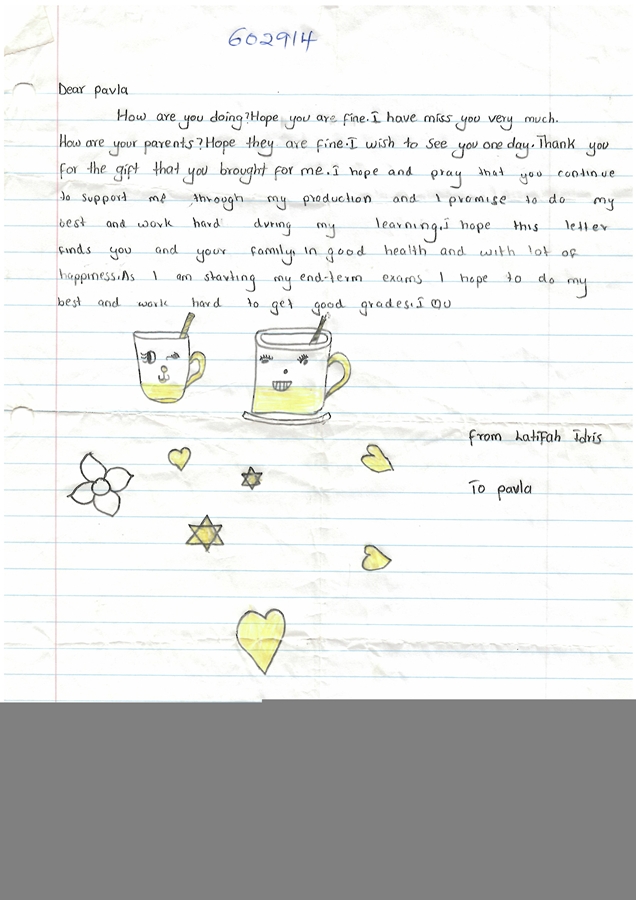 602914
Dear pavla
How are you doing?Hope you are fine.I have miss you very much.
How are your parents?Hope they are fine.I wish to see you one day.Thank you
for the gift that you brought for me.I hope and pray that you continue
to support me through my production and I promise to do my
best and work hard during my learning.I hope this letter
finds you and your family in good health and with lot of
happiness.As I am starting my end-term exams I hope to do my
best and work hard to get good grades.I ♡U
From Latifah Idris
To pavla